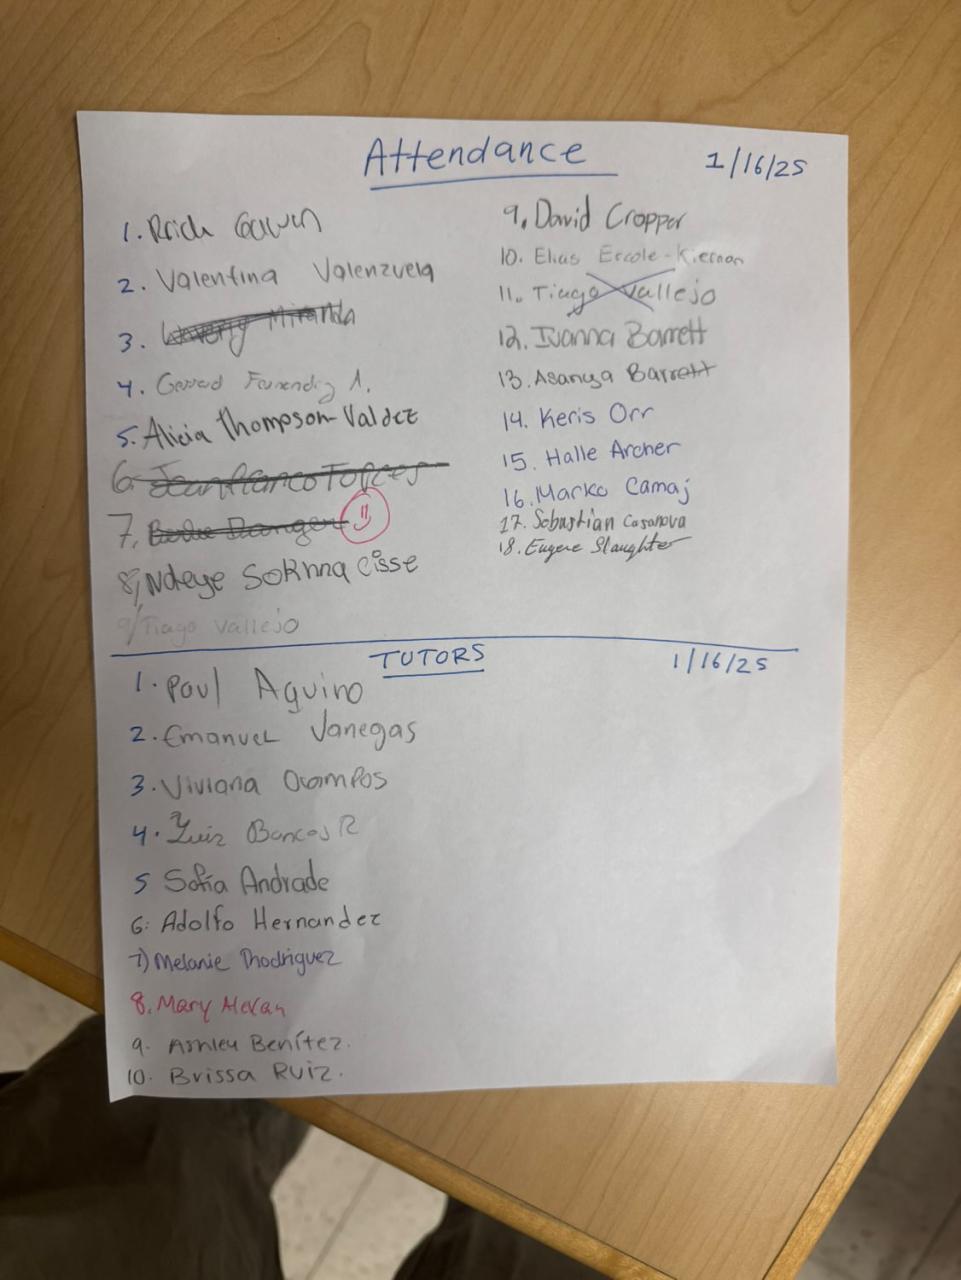 Attendance 1/16/25
1. Rrich
2. Valentina Valenzuela
3. Miranda
4. Gerrard A.
5. Alicia Thompson-Valdez
6. Jeanfranco Torres
7.
8, Ndeye Sokhna Cisse
9/ Tiago Vallejo
9. David Cropper
10. Elias Ercole-Kiernan
11. Tiago Vallejo
12. Ivanna Barrett
13. Asanya Barrett
14. Keris Orr
15. Halle Archer
16. Marko Camaj
17. Sebastian Casanova
18. Eugene Slaughter
TUTORS 1/16/25
1. Paul Aquino
2. Emanuel Vanegas
3. Viviana Ocampos
4. Luiz R
5 Sofia Andrade
6. Adolfo Hernandez
7) Melanie Rhodriguez
8. Mary
9. Ashley Benítez.
10. Brissa Ruiz.